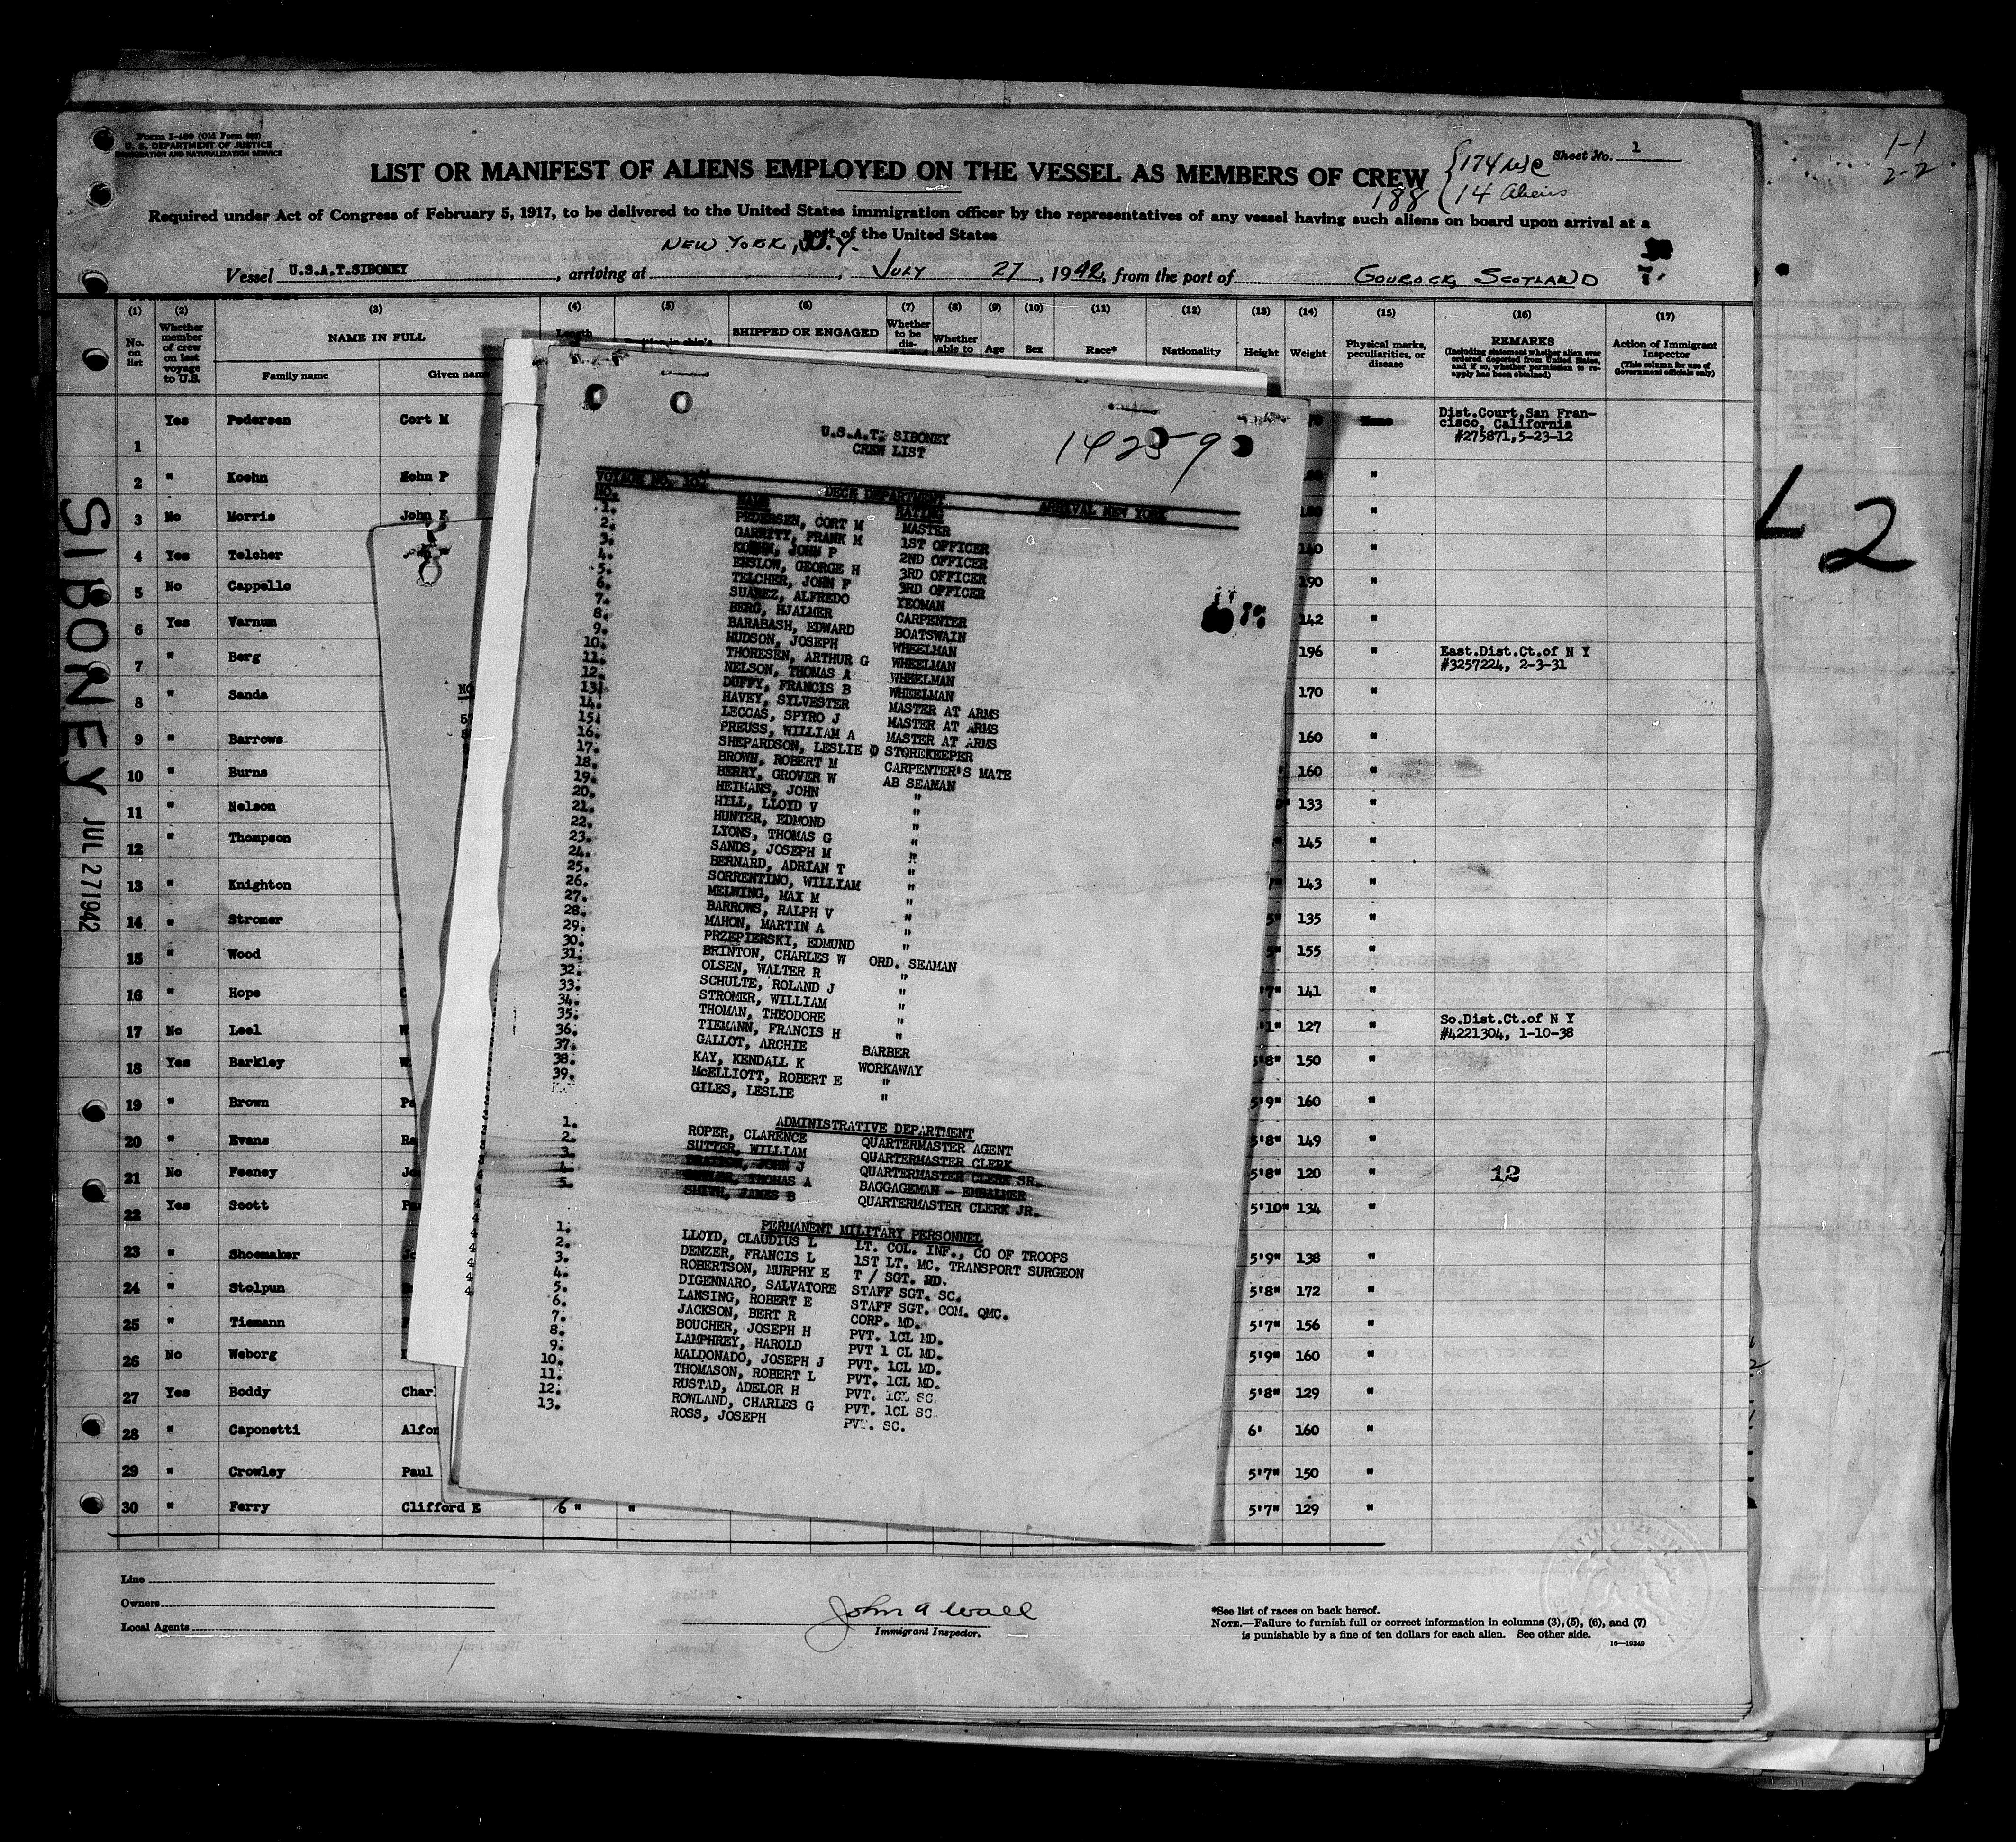 Form I-480 (Old Form 680)
U. S. DEPARTMENT OF JUSTICE
IMMIGRATION AND NATURALIZATION SERVICE
LIST OR MANIFEST OF ALIENS EMPLOYED ON THE VESSEL AS MEMBERS OF CREW
Sheet No. 1
174 USC
14 Aliens
188
1-1
2-2
Required under Act of Congress of February 5, 1917, to be delivered to the United States immigration officer by the representatives of any vessel having such aliens on board upon arrival at a
port of the United States
Vessel U.S.A.T.SIBONEY, arriving at NEW YORK, N.Y., JULY 27, 1942, from the port of GOUROCK, SCOTLAND
(1) (2) (3) (4) (5) (6) (7) (8) (9) (10) (11) (12) (13) (14) (15) (16) (17)
No. on list
Whether member of crew on last voyage to U.S.
NAME IN FULL
Family name
Given name
Length
SHIPPED OR ENGAGED
Whether to be dis-
Whether able to
Age
Sex
Race*
Nationality
Height
Weight
Physical marks, peculiarities, or disease
REMARKS
(Including statement whether alien ever ordered deported from United States, and if so, whether permission to re-apply has been obtained)
Action of Immigrant Inspector
(This column for use of Government officials only)
1 Yes Pedersen Cort M None Dist.Court,San Fran-
cisco, California
#275871,5-23-12
2 " Koehn John P "
3 No Morris John F "
4 Yes Telcher 140 "
5 No Cappello 190 "
6 Yes Varnum 142 "
7 " Berg 196 " East.Dist.Ct.of N Y
#3257224, 2-3-31
8 " Sanda 170 "
9 " Barrows 160 "
10 " Burns 160 "
11 " Nelson 133 "
12 " Thompson 145 "
13 " Knighton 143 "
14 " Stromer 135 "
15 " Wood 155 "
16 " Hope 141 "
17 No Leel 127 " So.Dist.Ct.of N Y
#4221304, 1-10-38
18 Yes Barkley 5'8" 150 "
19 " Brown 5'9" 160 "
20 " Evans 5'8" 149 "
21 No Feeney 5'8" 120 " 12
22 Yes Scott 5'10" 134 "
23 " Shoemaker 5'9" 138 "
24 " Stolpun 5'8" 172 "
25 " Tiemann 5'7" 156 "
26 No Weborg 5'9" 160 "
27 Yes Boddy Char 5'8" 129 "
28 " Caponetti Alfon 6' 160 "
29 " Crowley Paul 5'7" 150 "
30 " Ferry Clifford E 6 " " 5'7" 129 "
SIBONEY JUL 27 1942
L2
NO
U.S.A.T. SIBONEY
CREW LIST
14259
VOYAGE NO. DECK DEPARTMENT ARRIVAL NEW YORK
NO. NAME RATING
1. PEDERSEN, CORT M MASTER
2. GARRITY, FRANK M 1ST OFFICER
3. KOEHN, JOHN P 2ND OFFICER
4. ENSLOW, GEORGE H 3RD OFFICER
5. TELCHER, JOHN F 3RD OFFICER
6. SUAREZ, ALFREDO YEOMAN
7. BERG, HJALMER CARPENTER
8. BARABASH, EDWARD BOATSWAIN
9. HUDSON, JOSEPH WHEELMAN
10. THORESEN, ARTHUR G WHEELMAN
11. NELSON, THOMAS A WHEELMAN
12. DUFFY, FRANCIS B WHEELMAN
13. HAVEY, SYLVESTER MASTER AT ARMS
14. LECCAS, SPYRO J MASTER AT ARMS
15. PREUSS, WILLIAM A MASTER AT ARMS
16. SHEPARDSON, LESLIE D STOREKEEPER
17. BROWN, ROBERT M CARPENTER'S MATE
18. BERRY, GROVER W AB SEAMAN
19. HEIMANS, JOHN "
20. HILL, LLOYD V "
21. HUNTER, EDMOND "
22. LYONS, THOMAS G "
23. SANDS, JOSEPH M "
24. BERNARD, ADRIAN T "
25. SORRENTINO, WILLIAM "
26. MELWING, MAX M "
27. BARROWS, RALPH V "
28. MAHON, MARTIN A "
29. PRZEPIERSKI, EDMUND "
30. BRINTON, CHARLES W ORD. SEAMAN
31. OLSEN, WALTER R "
32. SCHULTE, ROLAND J "
33. STROMER, WILLIAM "
34. THOMAN, THEODORE "
35. TIEMANN, FRANCIS H "
36. GALLOT, ARCHIE BARBER
37. KAY, KENDALL K WORKAWAY
38. McELLIOTT, ROBERT E "
39. GILES, LESLIE "
ADMINISTRATIVE DEPARTMENT
1. ROPER, CLARENCE QUARTERMASTER AGENT
2. SUTTER, WILLIAM QUARTERMASTER CLERK
3. JOHN J QUARTERMASTER CLERK SR.
4. THOMAS A BAGGAGEMAN - EMBALMER
5. SMITH, JAMES B QUARTERMASTER CLERK JR.
PERMANENT MILITARY PERSONNEL
1. LLOYD, CLAUDIUS L LT. COL. INF., CO OF TROOPS
2. DENZER, FRANCIS L 1ST LT. MC. TRANSPORT SURGEON
3. ROBERTSON, MURPHY E T / SGT. MD.
4. DIGENNARO, SALVATORE STAFF SGT. SC.
5. LANSING, ROBERT E STAFF SGT. COM. QMC.
6. JACKSON, BERT R CORP. MD.
7. BOUCHER, JOSEPH H PVT. 1CL MD.
8. LAMPHREY, HAROLD PVT 1 CL MD.
9. MALDONADO, JOSEPH J PVT. 1CL MD.
10. THOMASON, ROBERT L PVT. 1CL MD.
11. RUSTAD, ADELOR H PVT. 1CL SC.
12. ROWLAND, CHARLES G PVT. 1CL SC.
13. ROSS, JOSEPH PVT. SC.
Line
Owners
Local Agents
John A Wall
Immigrant Inspector.
*See list of races on back hereof.
NOTE.—Failure to furnish full or correct information in columns (3), (5), (6), and (7)
is punishable by a fine of ten dollars for each alien. See other side.
16—19349